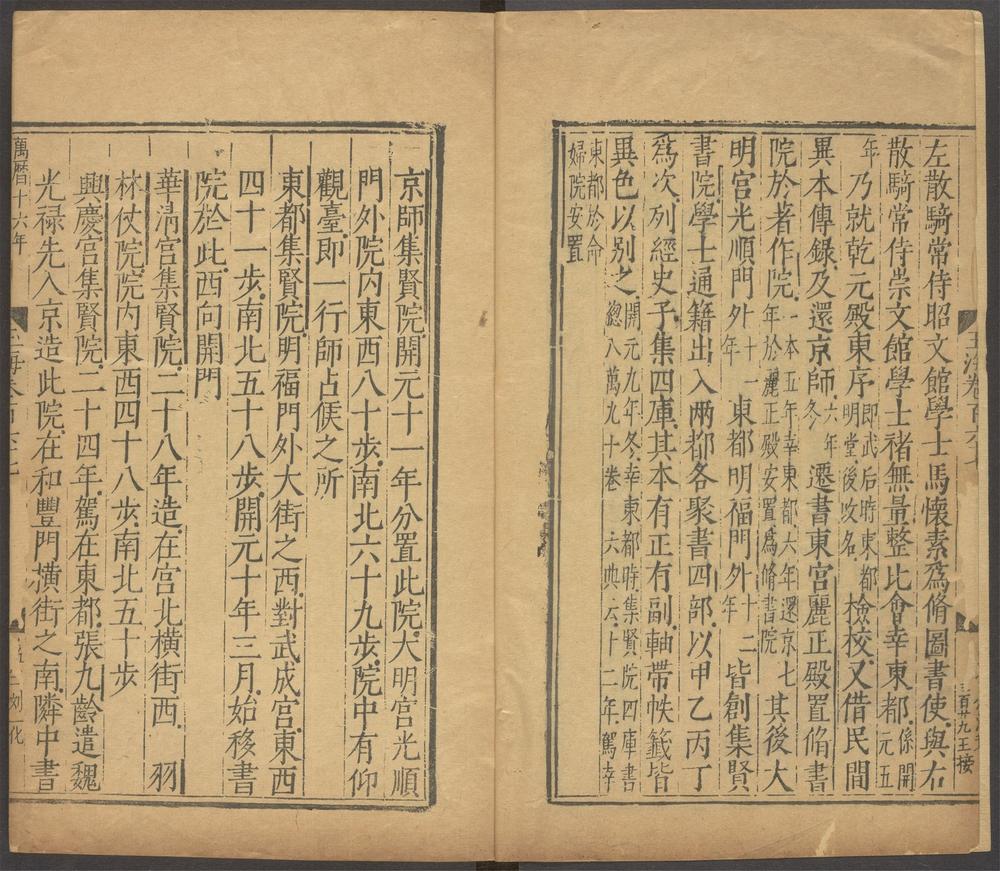 左散騎常侍昭文館學士馬懷素為脩圖書使與右
散騎常侍崇文館學士褚無量整比會幸東都係開元五
年乃就乾元殿東序即武后時東都明堂後改名檢校又借民間
異本傳錄及還京師六年冬遷書東宮麗正殿置脩書
院於著作院一本五年幸東都六年還京七年於麗正殿安置為脩書院其後大
明宮光順門外十一年東都明福門外十二年皆創集賢
書院學士通籍出入兩都各聚書四部以甲乙丙丁
為次列經史子集四庫其本有正有副軸帶帙籤皆
異色以別之開元九年冬幸東都時集賢院四庫書總八萬九十卷六典云十二年駕幸
東都於命婦院安置
京師集賢院開元十一年分置此院大明宮光順
門外院內東西八十步南北六十九步院中有仰
觀臺即一行師占候之所
東都集賢院明福門外大街之西對武成宮東西
四十一步南北五十八步開元十年三月始移書
院於此西向開門
華淸宮集賢院二十八年造在宮北橫街西 羽
林仗院院內東西四十八步南北五十步
興慶宮集賢院二十四年駕在東都張九齡遣魏
光祿先入京造此院在和豐門橫街之南隣中書
萬曆十六年